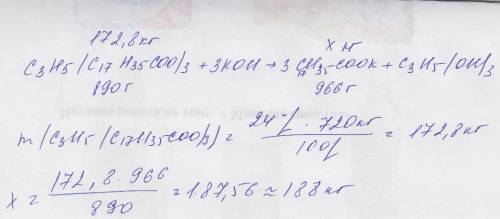 172,8кг x кг
C3H5/C17H35COO/3 + 3KOH → 3 C17H35-COOK + C3H5/OH/3
890г 966г
m/C3H5/C17H35COO/3/ = 24% · 720кг / 100% = 172,8кг
x = 172,8 · 966 / 890 = 187,56 ≈ 188кг